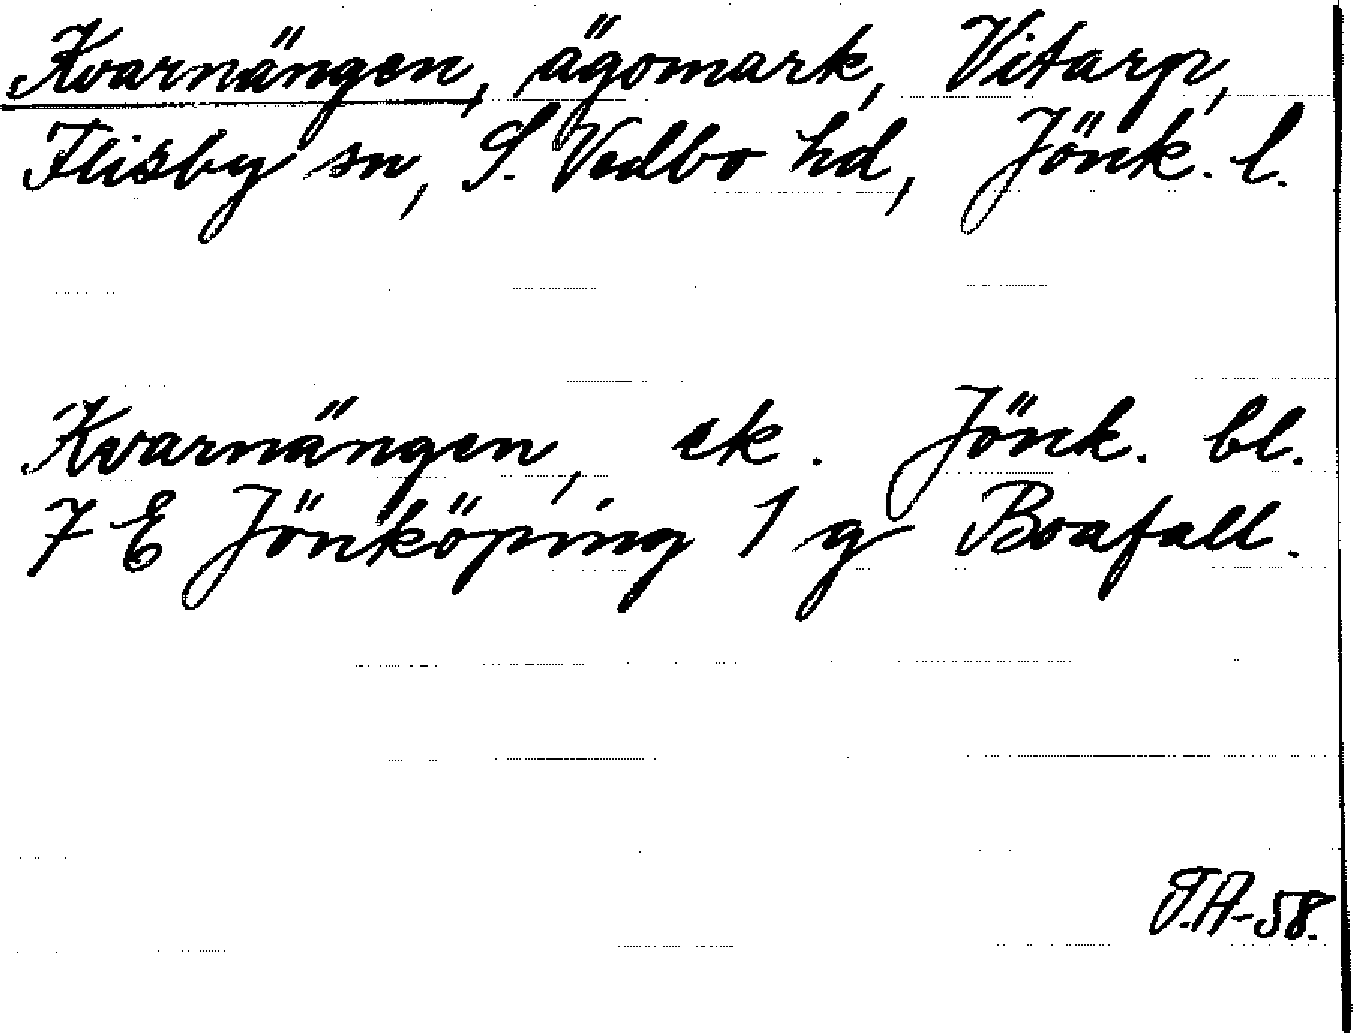 Kvarnängen, ägomark, Vitarp,
Flisby sn, S. Vedbo hd, Jönk. l.
Kvarnängen, ek. Jönk. bl.
7 E Jönköping 1 g Boafall.
T.A-58.